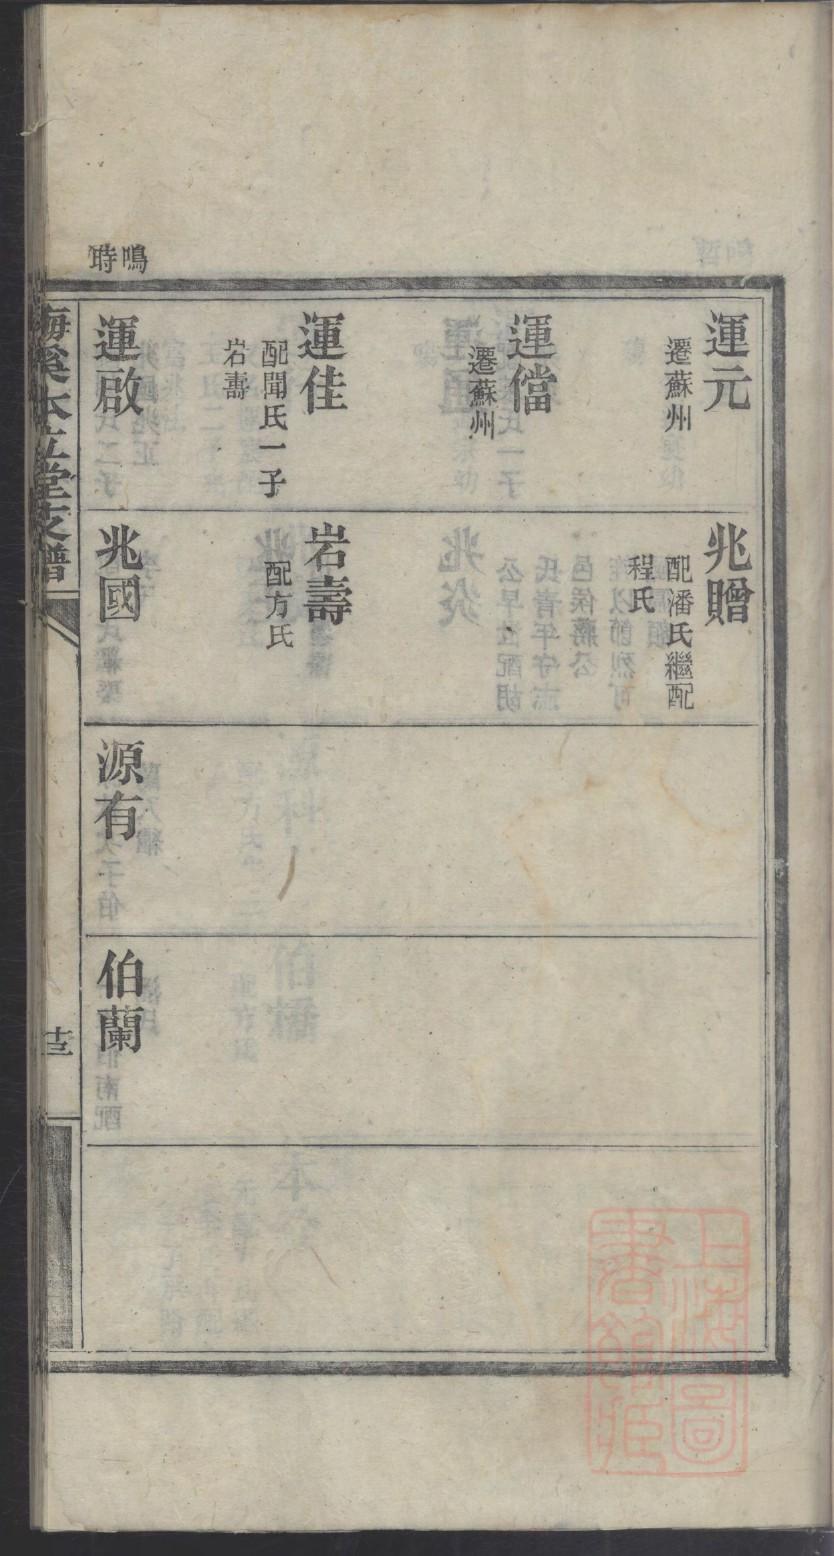 鳴時
運元
遷蘇州
運儅
遷蘇州
運佳
配聞氏一子
岩壽
運啟
兆贈
配潘氏繼配
程氏
岩壽
配方氏
兆國
源有
伯蘭
梅溪本立堂支譜
上海圖書館藏